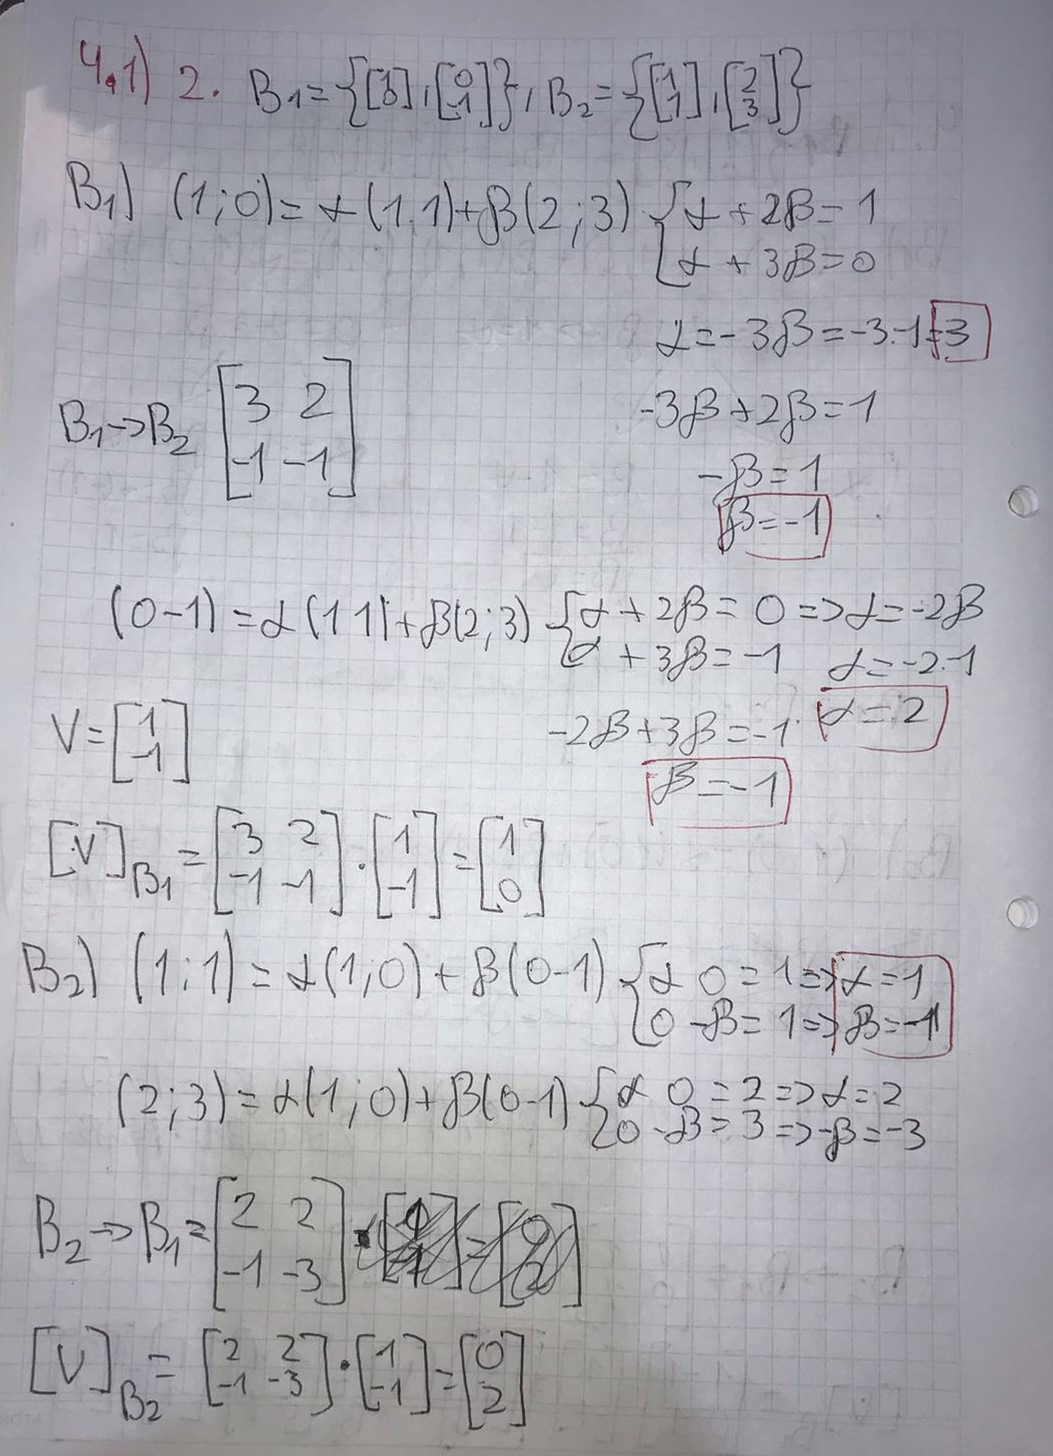 4.1) 2. B₁ = {[1 0], [0 -1]}, B₂ = {[1 1], [2 3]}
B₁) (1;0) = α(1.1) + β(2;3) { α + 2β = 1
α + 3β = 0
α = -3β = -3.-1 = 3
B₁→B₂ [3 2
-1 -1]
-3β + 2β = 1
-β = 1
β = -1
(0-1) = α(1 1) + β(2;3) { α + 2β = 0 => α = -2β
α + 3β = -1 α = -2.-1
V = [1 -1]
-2β + 3β = -1 α = 2
β = -1
[V]B₁ = [3 2
-1 -1] · [1 -1] = [1 0]
B₂) (1;1) = α(1;0) + β(0-1) { α 0 = 1 => α = 1
0 -β = 1 => β = -1
(2;3) = α(1;0) + β(0-1) { α 0 = 2 => α = 2
0 -β = 3 => -β = -3
B₂→B₁ = [2 2
-1 -3]
[V]B₂ = [2 2
-1 -3] · [1 -1] = [0 2]